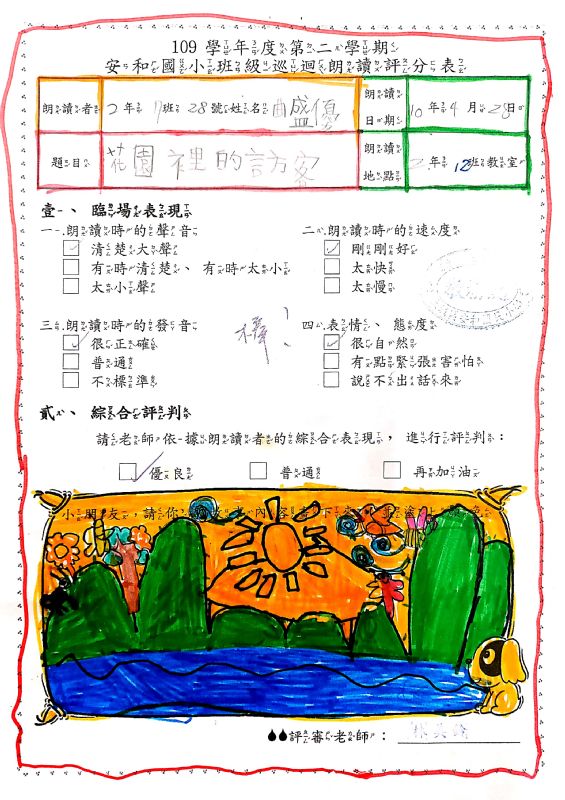 109 學年度第二學期
安和國小班級巡迴朗讀評分表
朗讀者 2年 班28號姓名 盛優
朗讀日期 10年4月28日
題目 花園裡的訪客
朗讀地點 2年12班教室
壹、臨場表現
一、朗讀時的聲音
清楚大聲
有時清楚、有時太小
太小聲
二、朗讀時的速度
剛剛好
太快
太慢
三、朗讀時的發音
很正確
普通
不標準
棒!
四、表情、態度
很自然
有點緊張害怕
說不出話來
貳、綜合評判
請老師依據朗讀者的綜合表現,進行評判:
優良
普通
再加油
小朋友,請你
評審老師: